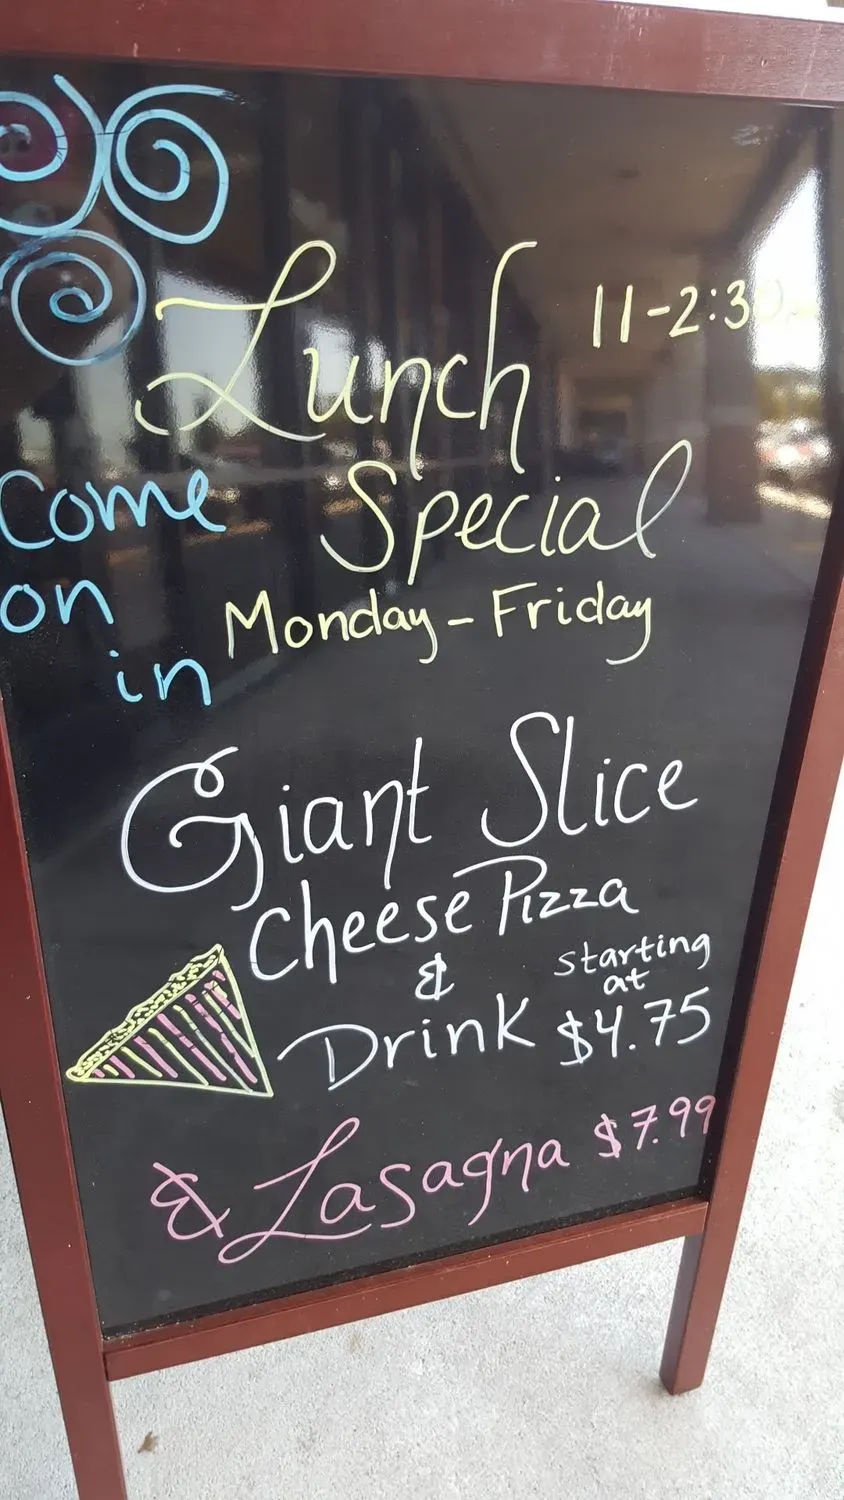 Lunch 11-2:30
Special
Monday-Friday
Come
on
in
Giant Slice
Cheese Pizza
&
Drink starting
at
$4.75
& Lasagna $7.99